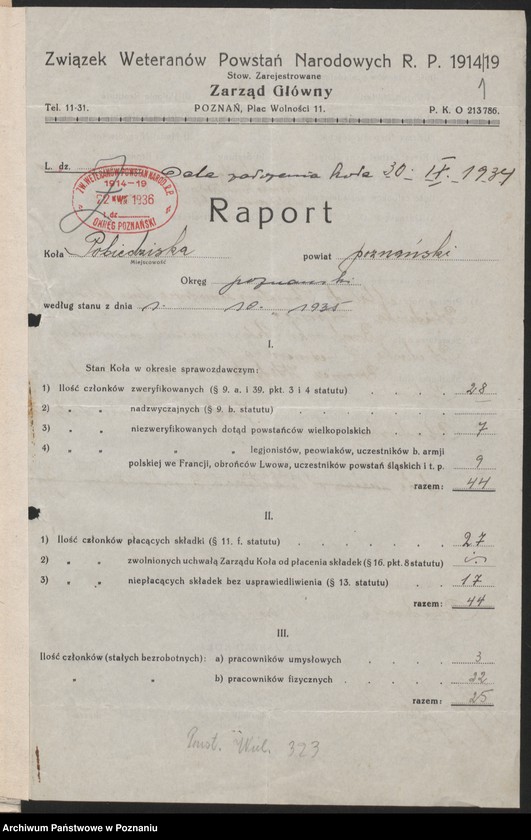 Związek Weteranów Powstań Narodowych R. P. 1914/19
1
Stow. Zarejestrowane
Zarząd Główny
Tel. 11-31. POZNAŃ, Plac Wolności 11. P. K. O 213 786.
L. dz. Data założenia koła 30. IX. 1934
ZW. WETERANÓW POWSTAŃ NAROD. R.P.
1914-19
1936
L. dz.
OKRĘG POZNAŃSKI
Raport
Koła Pobiedziska powiat poznański
Miejscowość
Okręg poznański
według stanu z dnia 1. 10. 1935
I.
Stan Koła w okresie sprawozdawczym:
1) Ilość członków zweryfikowanych (§ 9. a. i 39. pkt. 3 i 4 statutu) . . . . 28
2) „ „ nadzwyczajnych (§ 9. b. statutu) . . . . . .
3) „ „ niezweryfikowanych dotąd powstańców wielkopolskich . . . 7
4) „ „ „ „ legjonistów, peowiaków, uczestników b. armji
polskiej we Francji, obrońców Lwowa, uczestników powstań śląskich i t. p. 9
razem: 44
II.
1) Ilość członków płacących składki (§ 11. f. statutu) . . . . . . 27
2) „ „ zwolnionych uchwałą Zarządu Koła od płacenia składek (§ 16. pkt. 8 statutu)
3) „ „ niepłacących składek bez usprawiedliwienia (§ 13. statutu) . . . 17
razem: 44
III.
Ilość członków (stałych bezrobotnych): a) pracowników umysłowych . . . . 3
„ „ b) pracowników fizycznych . . . . . 22
razem: 25
Powst. Wiel. 323
Archiwum Państwowe w Poznaniu